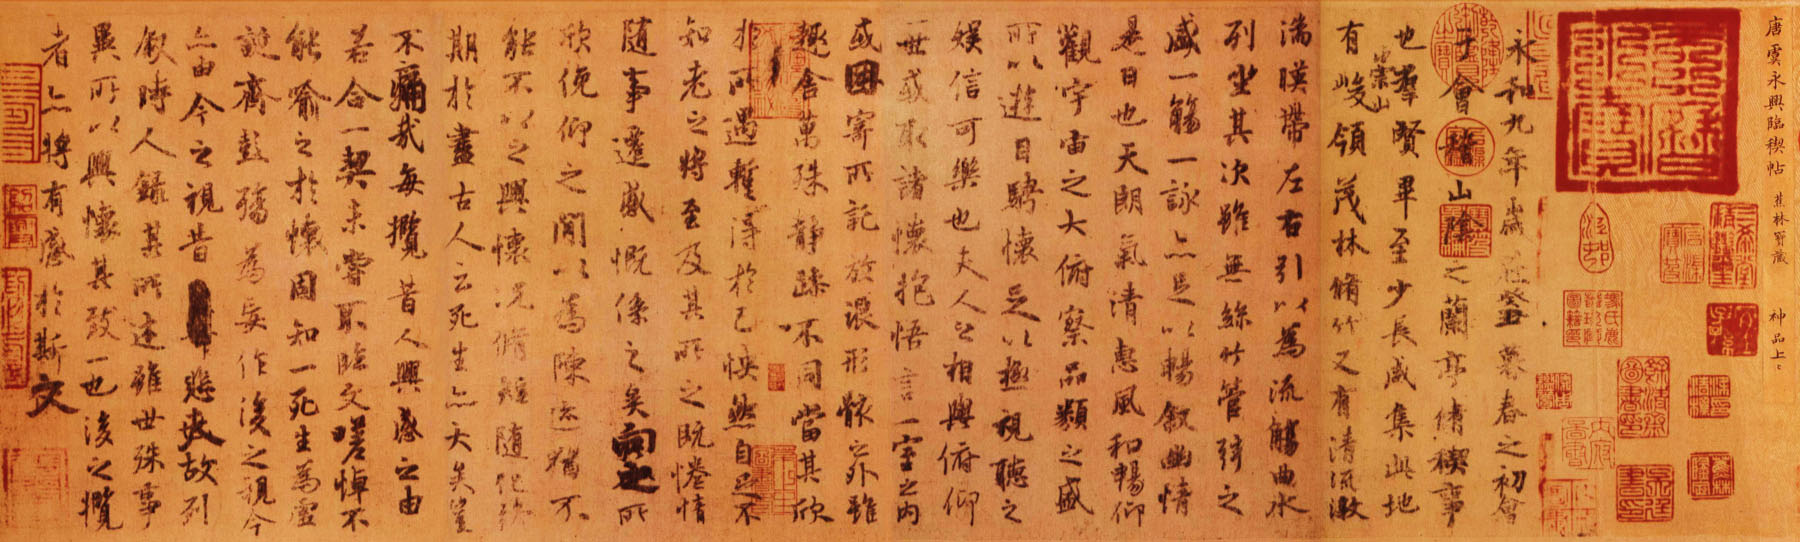 唐虞永興臨禊帖 蕉林寶藏 神品上上
永和九年歲在癸丑暮春之初會
于會稽山陰之蘭亭脩稧事
也羣賢畢至少長咸集此地
有崇山峻領茂林脩竹又有清流激
湍暎帶左右引以為流觴曲水
列坐其次雖無絲竹管弦之
盛一觴一詠亦足以暢敘幽情
是日也天朗氣清惠風和暢仰
觀宇宙之大俯察品類之盛
所以遊目騁懷足以極視聽之
娛信可樂也夫人之相與俯仰
一世或取諸懷抱悟言一室之內
或因寄所託放浪形骸之外雖
趣舍萬殊靜躁不同當其欣
於所遇暫得於己怏然自足不
知老之將至及其所之既惓情
隨事遷感慨係之矣向之所
欣俛仰之閒以為陳迹猶不
能不以之興懷況脩短隨化終
期於盡古人云死生亦大矣豈
不痛哉每攬昔人興感之由
若合一契未嘗不臨文嗟悼不
能喻之於懷固知一死生為虛
誕齊彭殤為妄作後之視今
亦由今之視昔悲夫故列
敘時人錄其所述雖世殊事
異所以興懷其致一也後之攬
者亦將有感於斯文